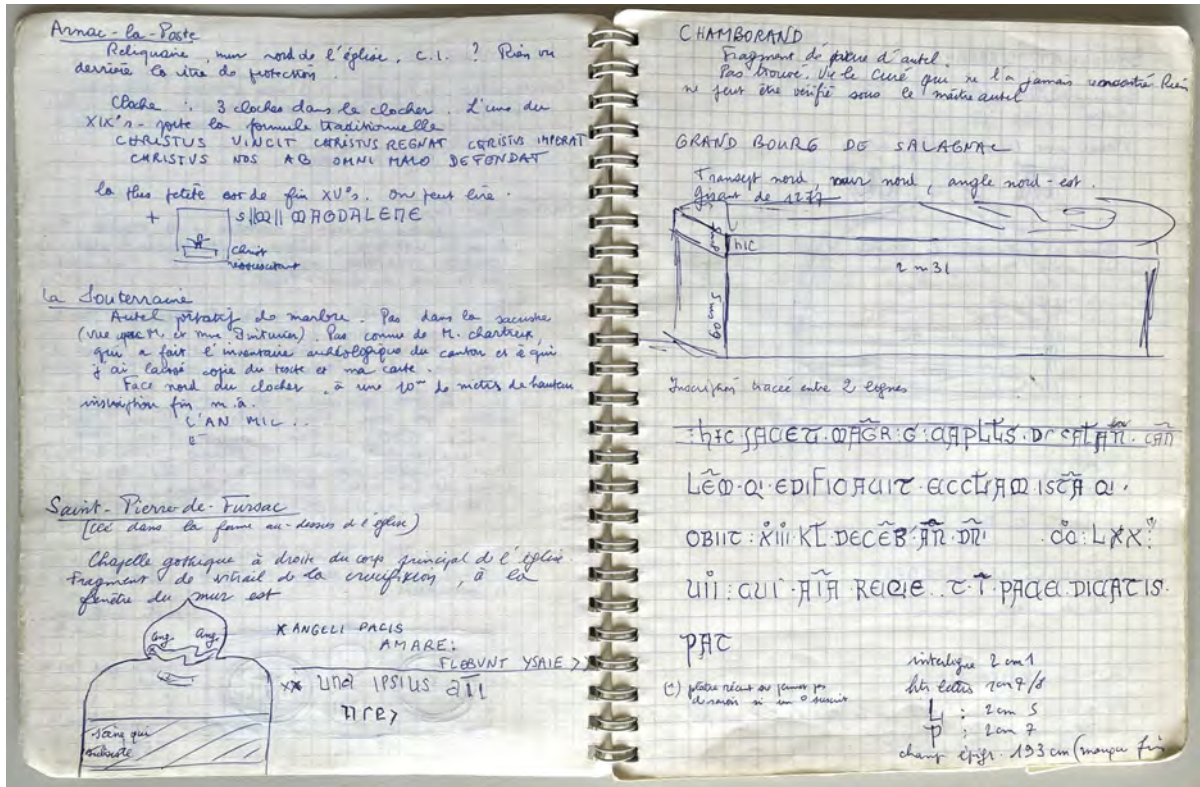 Arnac-la-Poste
Reliquaire, mur nord de l'église, c.l. ? Rien vu
derrière la vitre de protection.
Cloche : 3 cloches dans le clocher. L'une du
XIX°s. porte la formule traditionnelle
CHRISTUS VINCIT CHRISTVS REGNAT CHRISTVS IMPERAT
CHRISTVS NOS AB OMNI MALO DEFENDAT
la plus petite est de fin XV°s. On peut lire :
+ S MAGDALENE
christ
ressuscitant
La Souterraine
Autel portatif de marbre. Pas dans la sacristie
(vue avec M. et Mme). Pas connue de M. chartreux,
qui a fait l'inventaire archéologique du canton et à qui
j'ai laissé copie du texte et ma carte.
Face nord du clocher, à une 10ne de mètres de hauteur
inscription fin m.a.
L'AN MIL ..
Saint-Pierre-de-Fursac
(clé dans la ferme au-dessus de l'église)
Chapelle gothique à droite du corps principal de l'église.
Fragment de vitrail de la crucifixion, à la
fenêtre du mur est
Ang. Ang.
x ANGELI PACIS
AMARE:
FLEBVNT YSAIE >>
xx una IPSIUS
scène qui
subsiste
CHAMBORAND
Fragment de pierre d'autel.
Pas trouvé. Vu le curé qui ne l'a jamais rencontré. Rien
ne peut être vérifié sous le maître autel
GRAND BOURG DE SALAGNAC
Transept nord, mur nord, angle nord-est.
Gisant de 1277
hIC
2 m 31
60 cm 5
Inscription tracée entre 2 lignes
: hIC JACET · MAGR : G : CAPLLS · DE CALAN · CAN
LEM · Q · EDIFICAUIT · ECCLIAM ISTA Q ·
OBIIT : XIII KL DECEB AN DNI CC : LXX :
UII : CUI AIA REQIE .. C T PACE DICATIS ·
PAT
(*) plâtre récent
interligne 2 cm 1
hts lettres 1 cm 7/8
L : 2 cm 5
P : 2 cm 7
champ épigr. 193 cm (manque fin